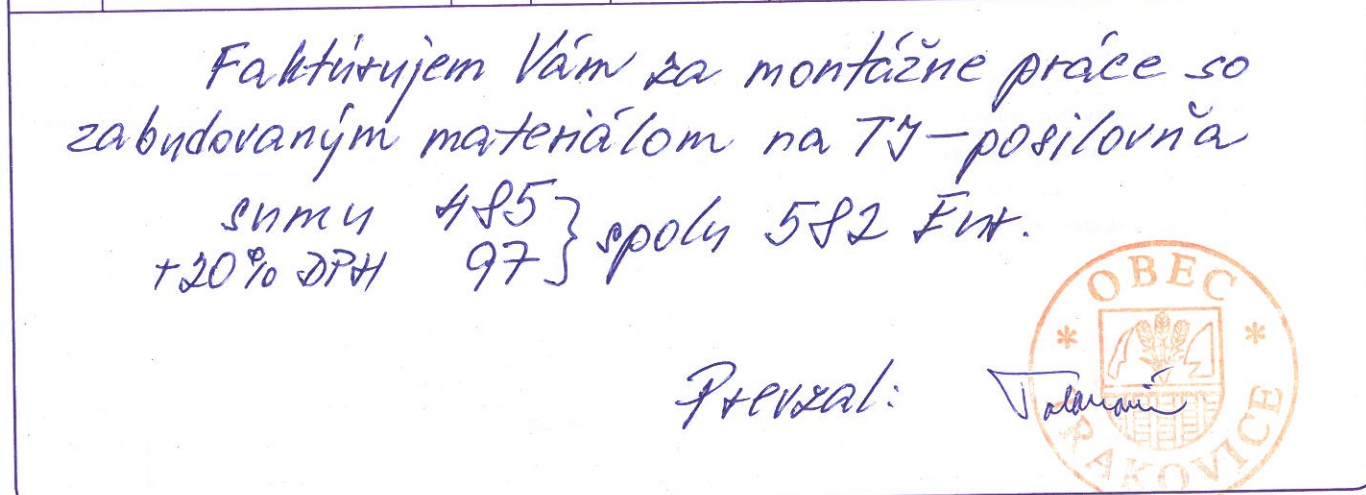 Faktúrujem Vám za montážne práce so
zabudovaným materiálom na TJ-posilovňa
sumu 485 } spolu 582 Eur.
+20% DPH 97
Prevzal:
OBEC
RAKOVICE